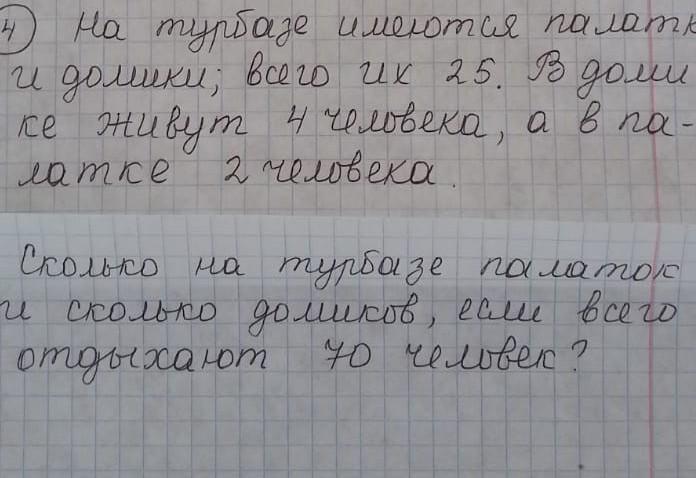 4) На турбазе имеются палатк
и домики; всего их 25. В доми
ке живут 4 человека, а в па-
латке 2 человека.
Сколько на турбазе палаток
и сколько домиков, если всего
отдыхают 70 человек?